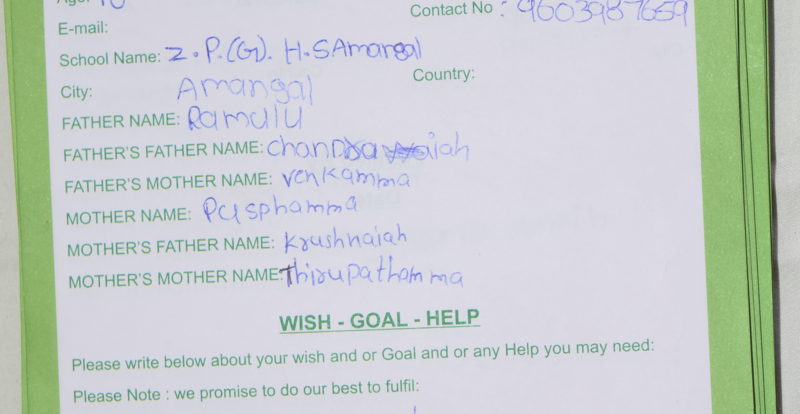 Contact No : 9603987659
E-mail:
School Name: Z.P.(G). H.S Amangal
City: Amangal Country:
FATHER NAME: Ramulu
FATHER'S FATHER NAME: chandraiah
FATHER'S MOTHER NAME: venkamma
MOTHER NAME: Pusphamma
MOTHER'S FATHER NAME: Krushnaiah
MOTHER'S MOTHER NAME: Thirupathamma
WISH - GOAL - HELP
Please write below about your wish and or Goal and or any Help you may need:
Please Note : we promise to do our best to fulfil: